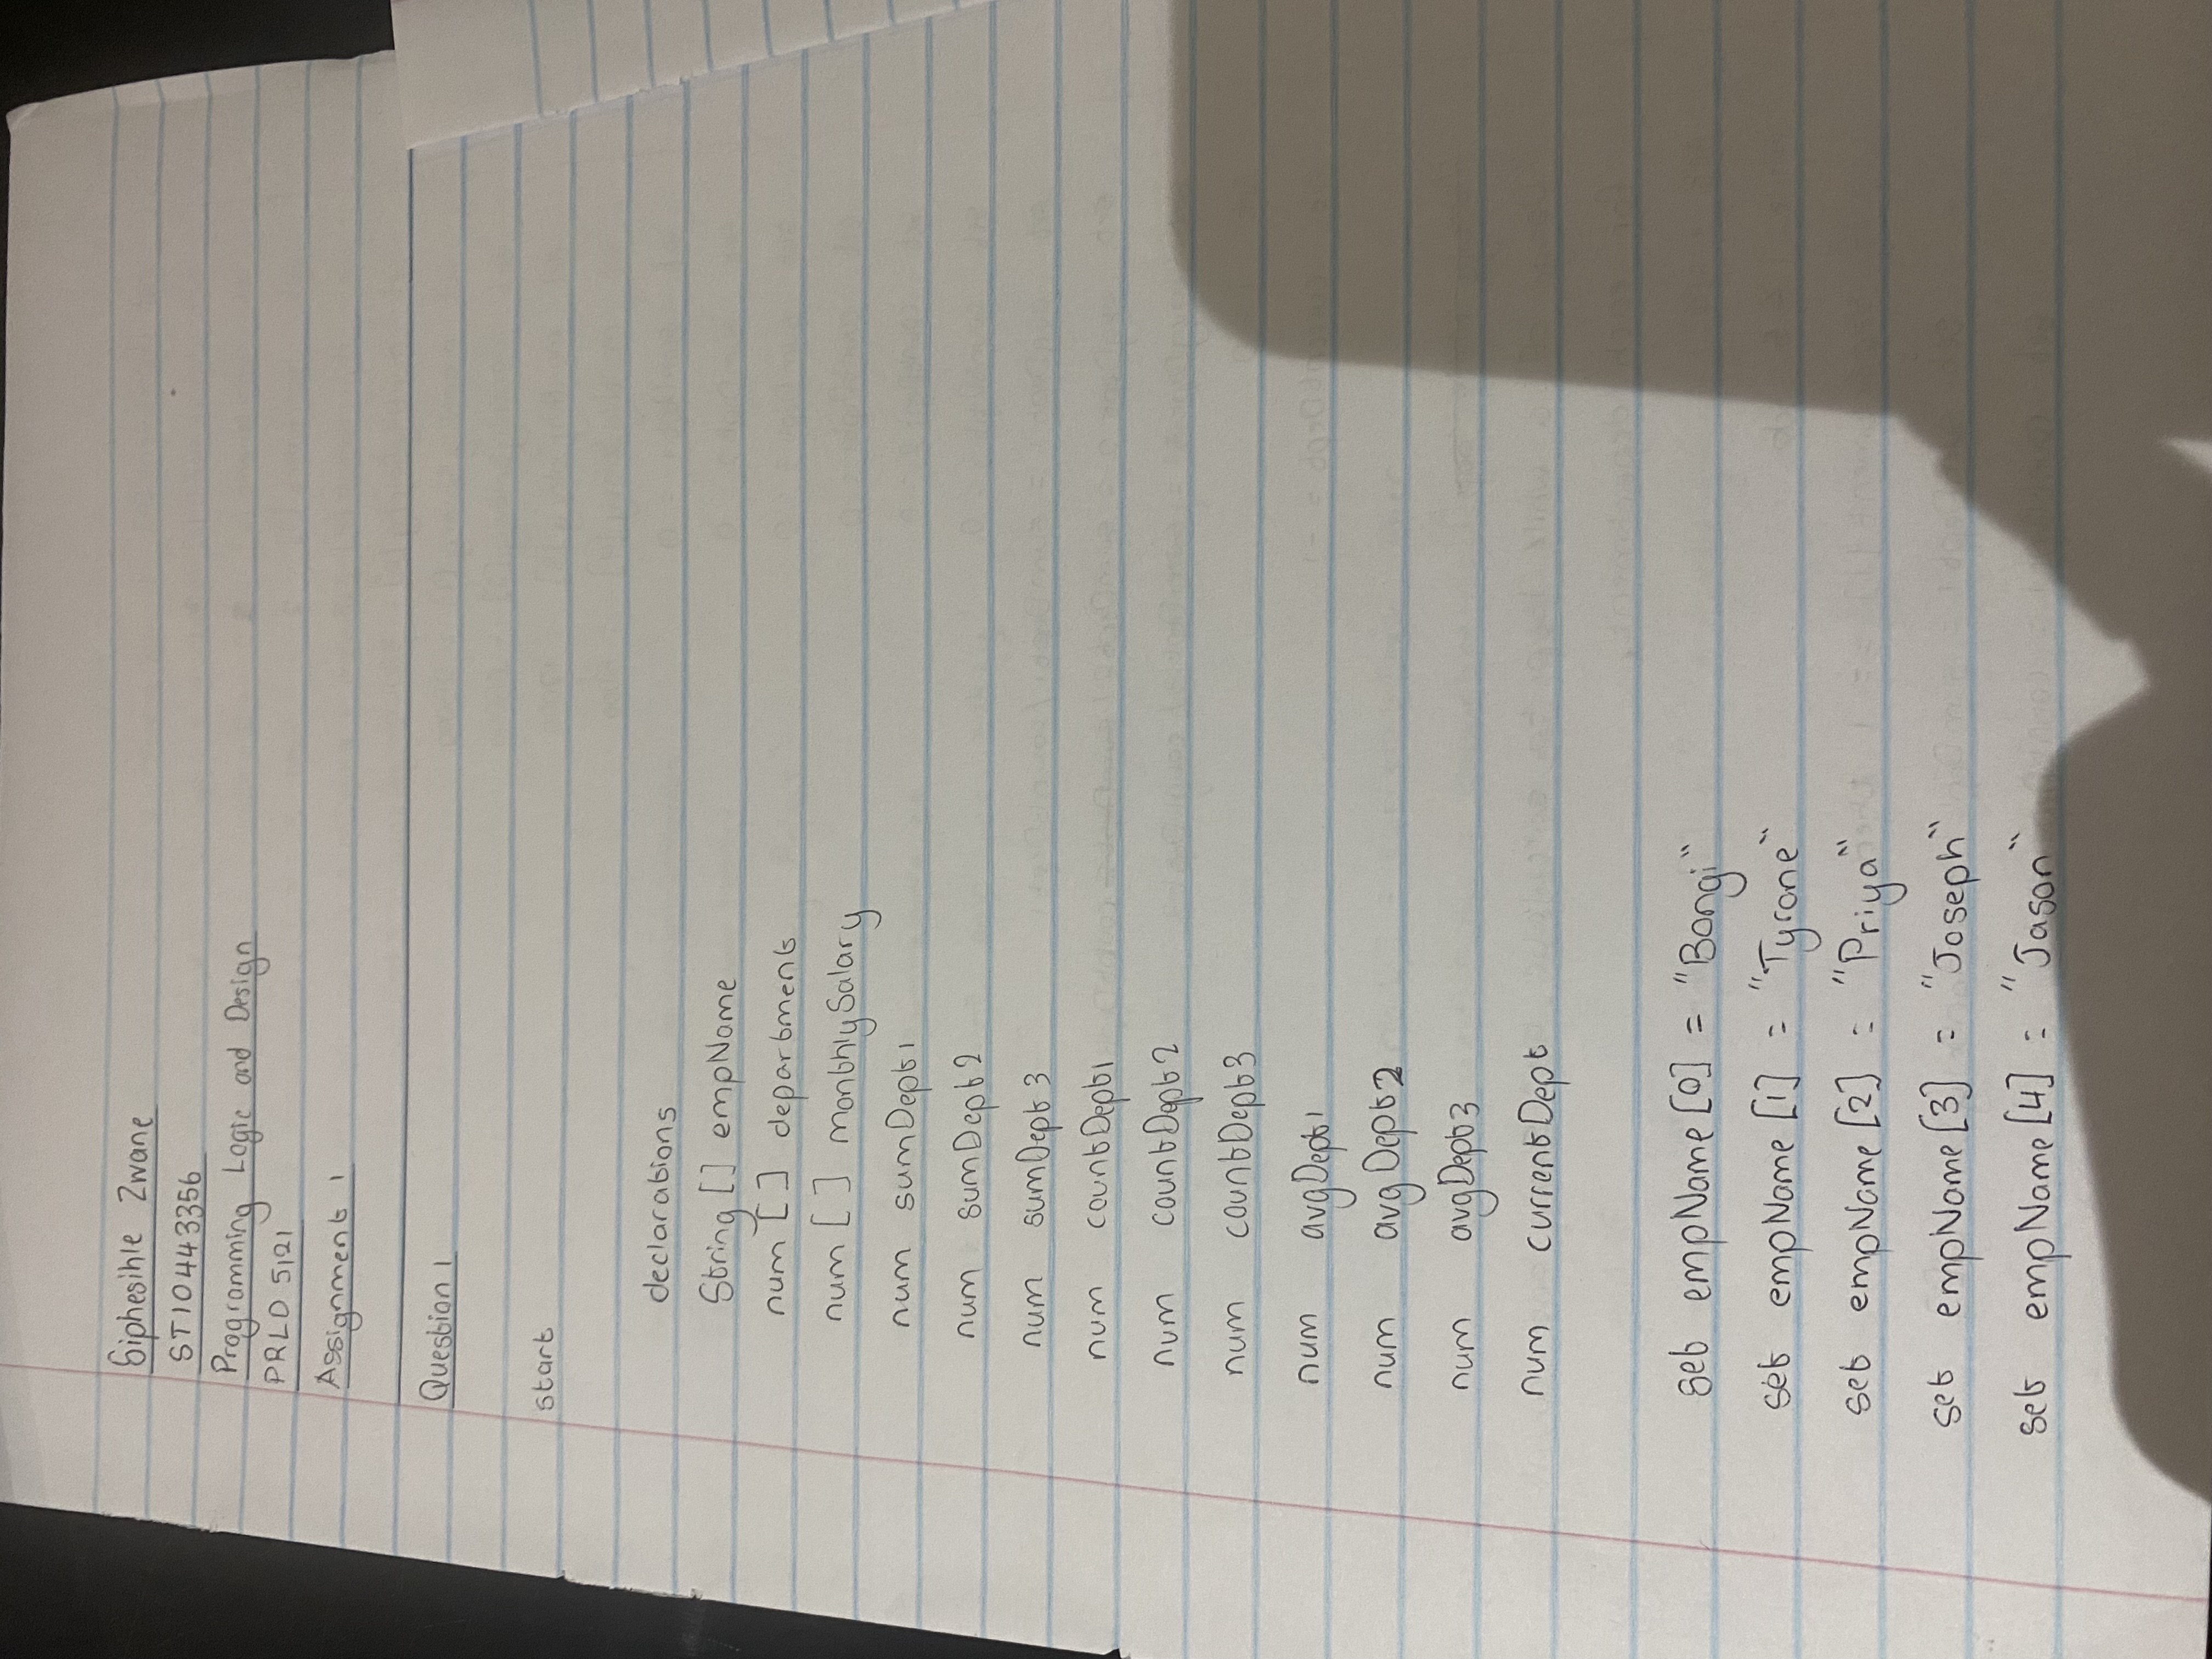 Siphesihle Zwane
ST10443356
Programming Logic and Design
PRLD 5121
Assignment 1
Question 1
start
declarations
String [] empName
num [] department
num [] monthlySalary
num sumDept1
num sumDept2
num sumDept3
num countDept1
num countDept2
num countDept3
num avgDept1
num avgDept2
num avgDept3
num currentDept
set empName [0] = "Bongi"
set empName [1] = "Tyrone"
set empName [2] = "Priya"
set empName [3] = "Joseph"
set empName [4] = "Jason"